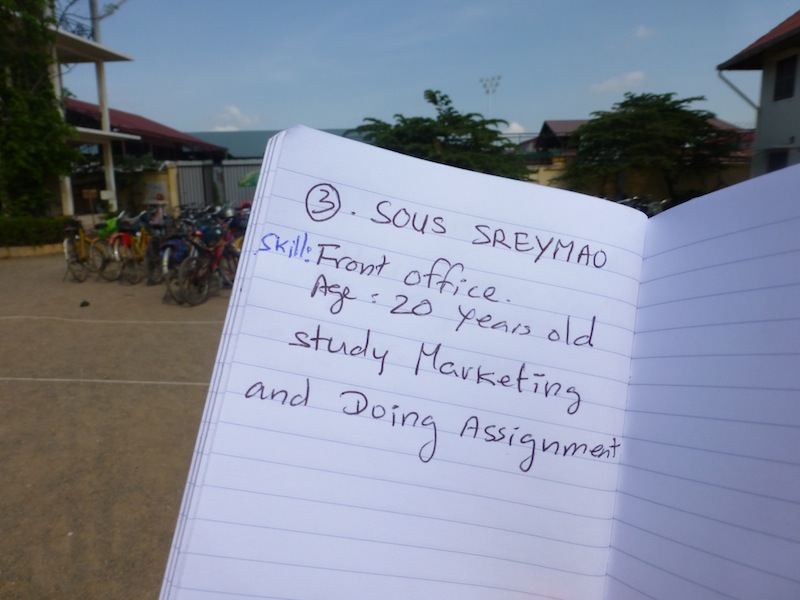 ③. SOUS SREYMAO
Skill: Front office.
Age : 20 years old
study Marketing
and Doing Assignment